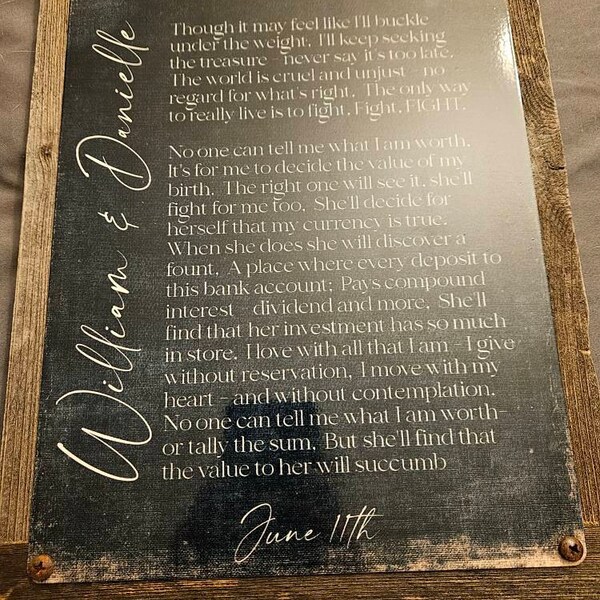 William & Danielle
Though it may feel like I'll buckle
under the weight, I'll keep seeking
the treasure - never say it's too late.
The world is cruel and unjust - no
regard for what's right. The only way
to really live is to fight. Fight. FIGHT.
No one can tell me what I am worth.
It's for me to decide the value of my
birth. The right one will see it, she'll
fight for me too. She'll decide for
herself that my currency is true.
When she does she will discover a
fount, A place where every deposit to
this bank account; Pays compound
interest - dividend and more. She'll
find that her investment has so much
in store. I love with all that I am - I give
without reservation, I move with my
heart - and without contemplation.
No one can tell me what I am worth-
or tally the sum, But she'll find that
the value to her will succumb
June 11th